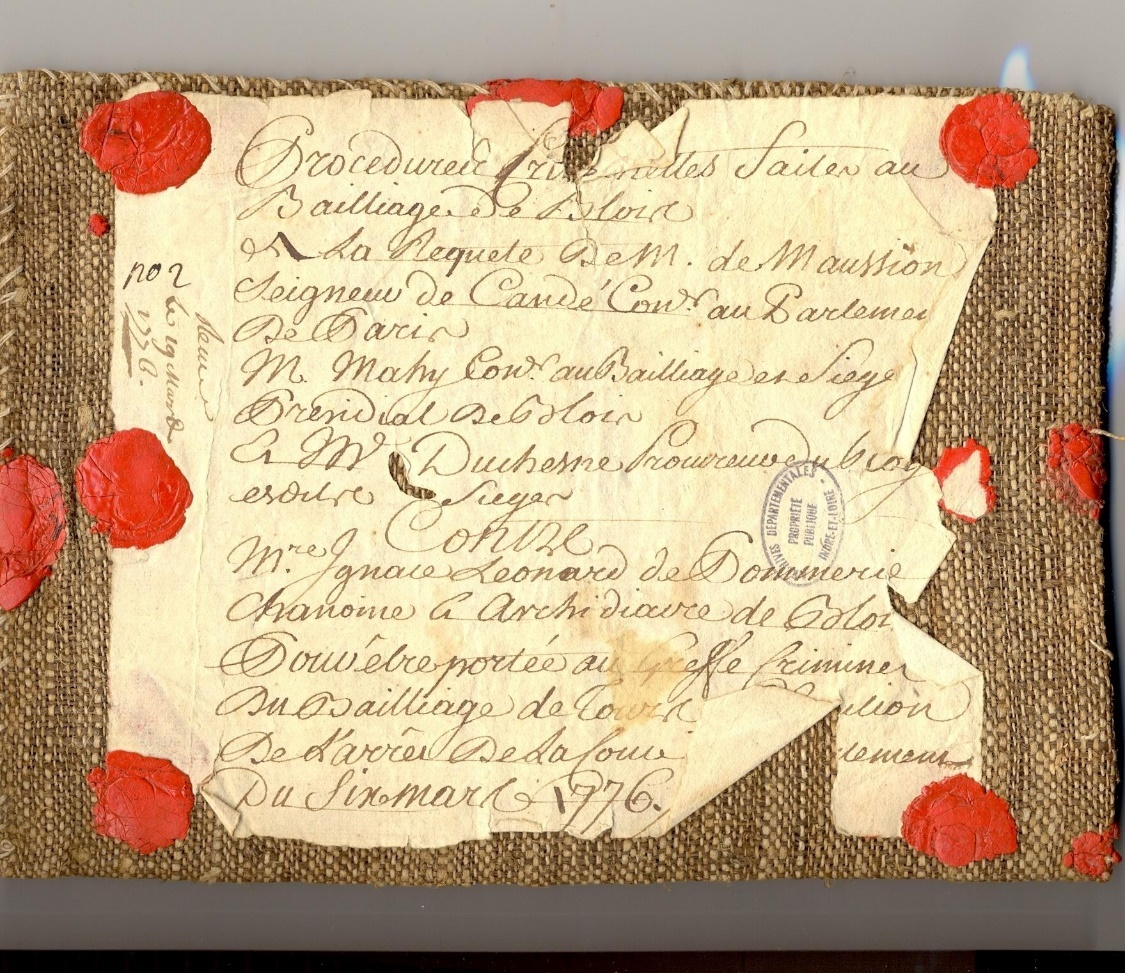 Procedures Criminelles faites au
Bailliage de Blois
a La Requete De M. de Maussion
Seigneur de Candé Con.er au Parlemen
De Paris
M. Mahy Con.er au Bailliage et Siege
Presidial De Blois
Et Mr Duchesne Procureur du Roy
esdits Sieges
Contre
Mre Ignace Leonard de Pommerie
Chanoine & Archidiacre de Blois
Pour être portée au Greffe Criminel
Du Bailliage de Tours
De L'arrêt De La Cour
lement
Du Six mars 1776.
no 2
le 19 Mars
1776.
ARCHIVES DEPARTEMENTALES
PROPRIÉTÉ
PUBLIQUE
INDRE-ET-LOIRE